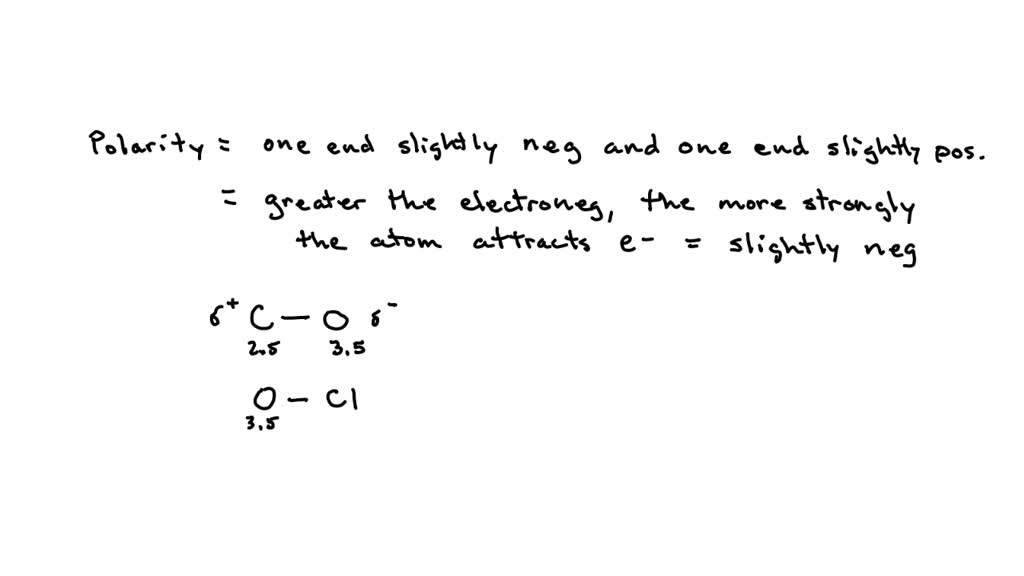 Polarity = one end slightly neg and one end slightly pos.
= greater the electroneg, the more strongly
the atom attracts e- = slightly neg
δ⁺ C — O δ⁻
2.5 3.5
O — Cl
3.5